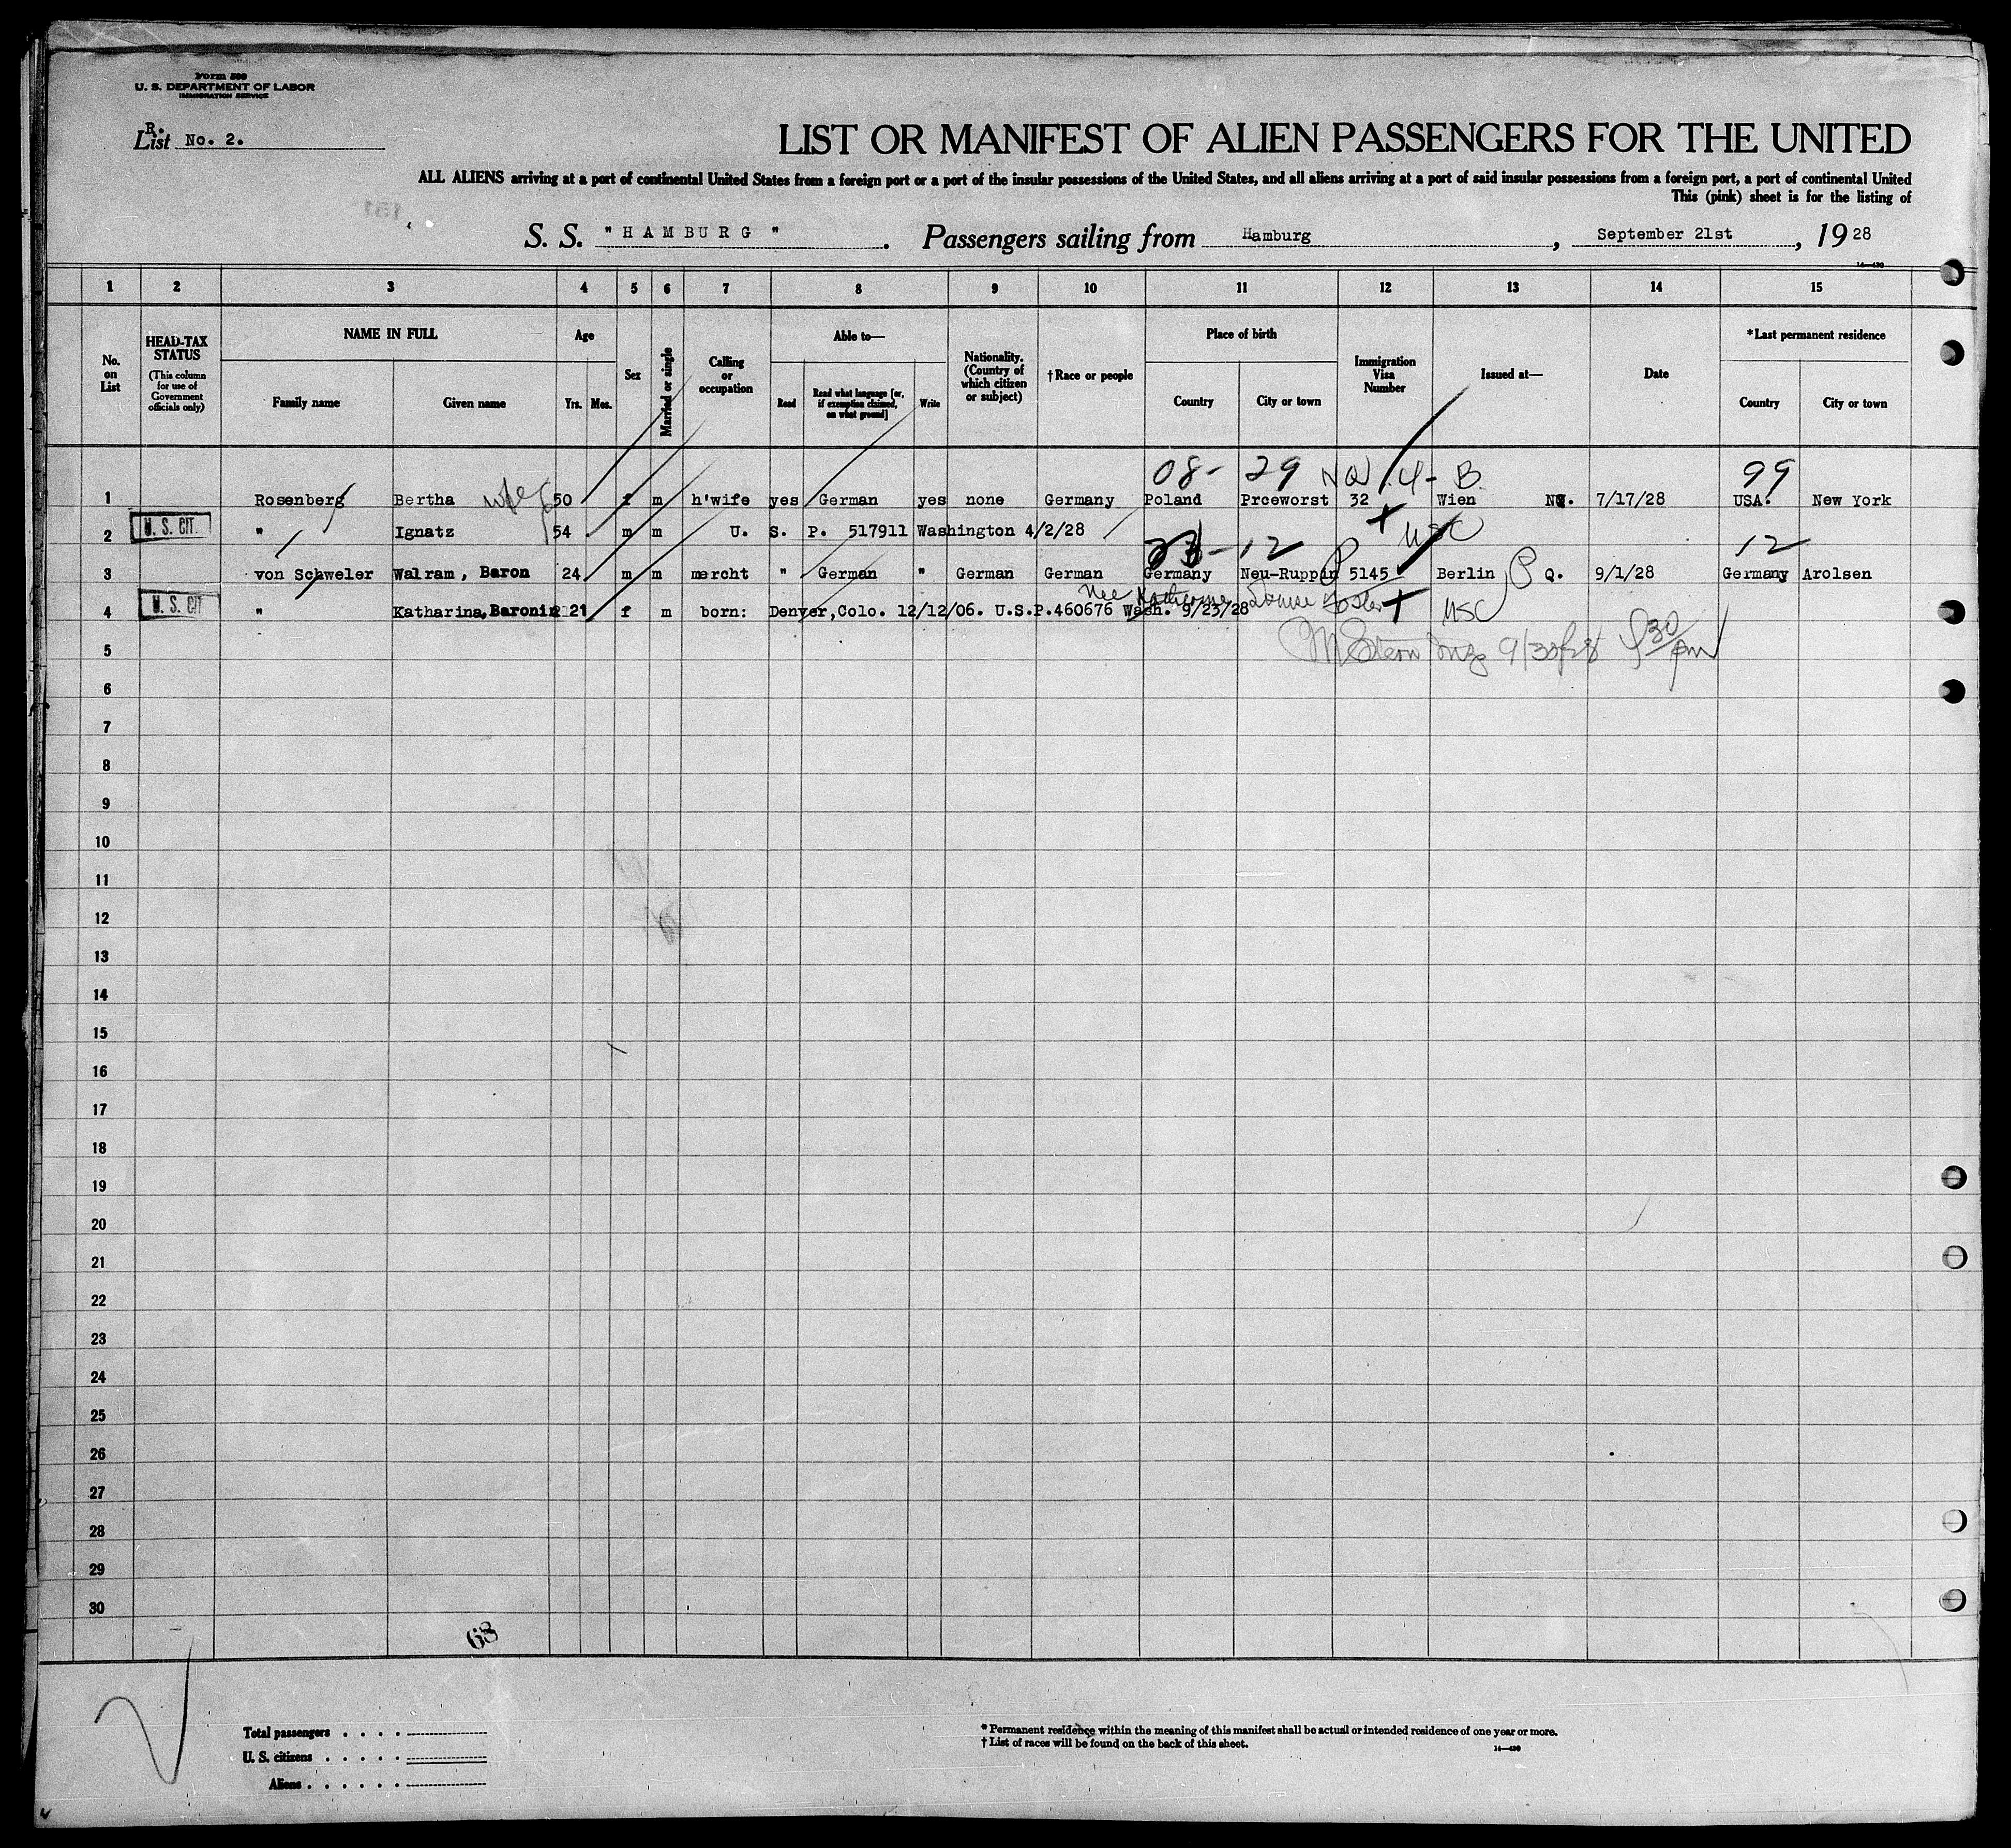 Form 500
U. S. DEPARTMENT OF LABOR
IMMIGRATION SERVICE
R.
List No. 2.
LIST OR MANIFEST OF ALIEN PASSENGERS FOR THE UNITED
ALL ALIENS arriving at a port of continental United States from a foreign port or a port of the insular possessions of the United States, and all aliens arriving at a port of said insular possessions from a foreign port, a port of continental United
This (pink) sheet is for the listing of
S. S. "HAMBURG". Passengers sailing from Hamburg, September 21st, 1928
1 2 3 4 5 6 7 8 9 10 11 12 13 14 15
No. on List
HEAD-TAX STATUS (This column for use of Government officials only)
NAME IN FULL
Family name Given name
Age
Yrs. Mos.
Sex
Married or single
Calling or occupation
Able to—
Read Read what language [or, if exemption claimed, on what ground] Write
Nationality. (Country of which citizen or subject)
†Race or people
Place of birth
Country City or town
Immigration Visa Number
Issued at—
Date
*Last permanent residence
Country City or town
08- 29 NQ 4- B. 99
1 Rosenberg Bertha wife 50 f m h'wife yes German yes none Germany Poland Prceworst 32 Wien NQ. 7/17/28 USA. New York
2 U. S. CIT. " Ignatz 54 m m U. S. P. 517911 Washington 4/2/28 USC
23-12 12
3 von Schweler Walram, Baron 24 m m mercht " German " German German Germany Neu-Ruppin 5145 Berlin Q. 9/1/28 Germany Arolsen
nee Louise
4 U. S. CIT " Katharina, Baronin 21 f m born: Denver, Colo. 12/12/06. U.S.P.460676 Wash. 9/23/28 USC
5 M Stern 9/30/28 30 pm
6
7
8
9
10
11
12
13
14
15
16
17
18
19
20
21
22
23
24
25
26
27
28
29
30
68
Total passengers . . . .
U. S. citizens . . . . .
Aliens . . . . . .
* Permanent residence within the meaning of this manifest shall be actual or intended residence of one year or more.
† List of races will be found on the back of this sheet.
14—430